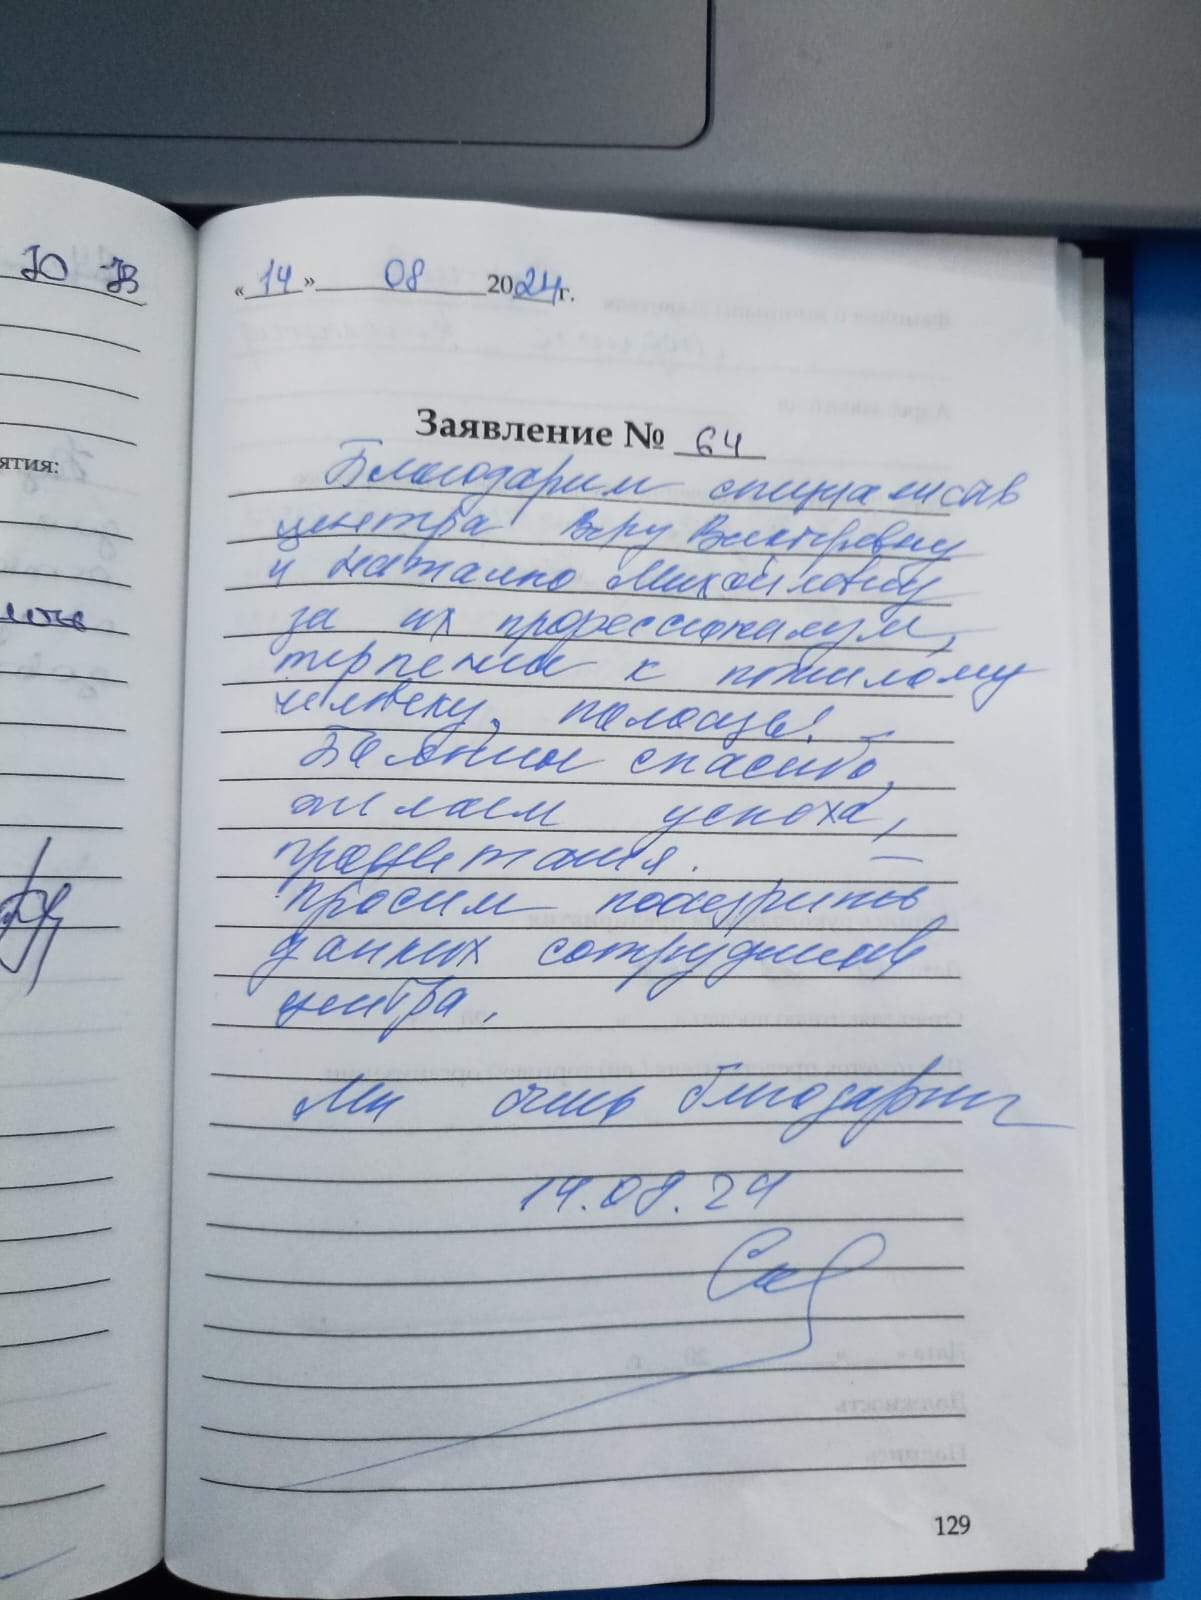 Ю В
ятия:
«14» 08 2024 г.
Заявление № 64
Благодарим специалистов
центра Веру Викторовну
и Наталию Михайловну
за их профессионализм,
терпение к пожилому
человеку, помощь!
Большое спасибо,
желаем успеха,
процветания.
Просим поощрить
данных сотрудников
центра.
Мы очень благодарны
14.08.24
129